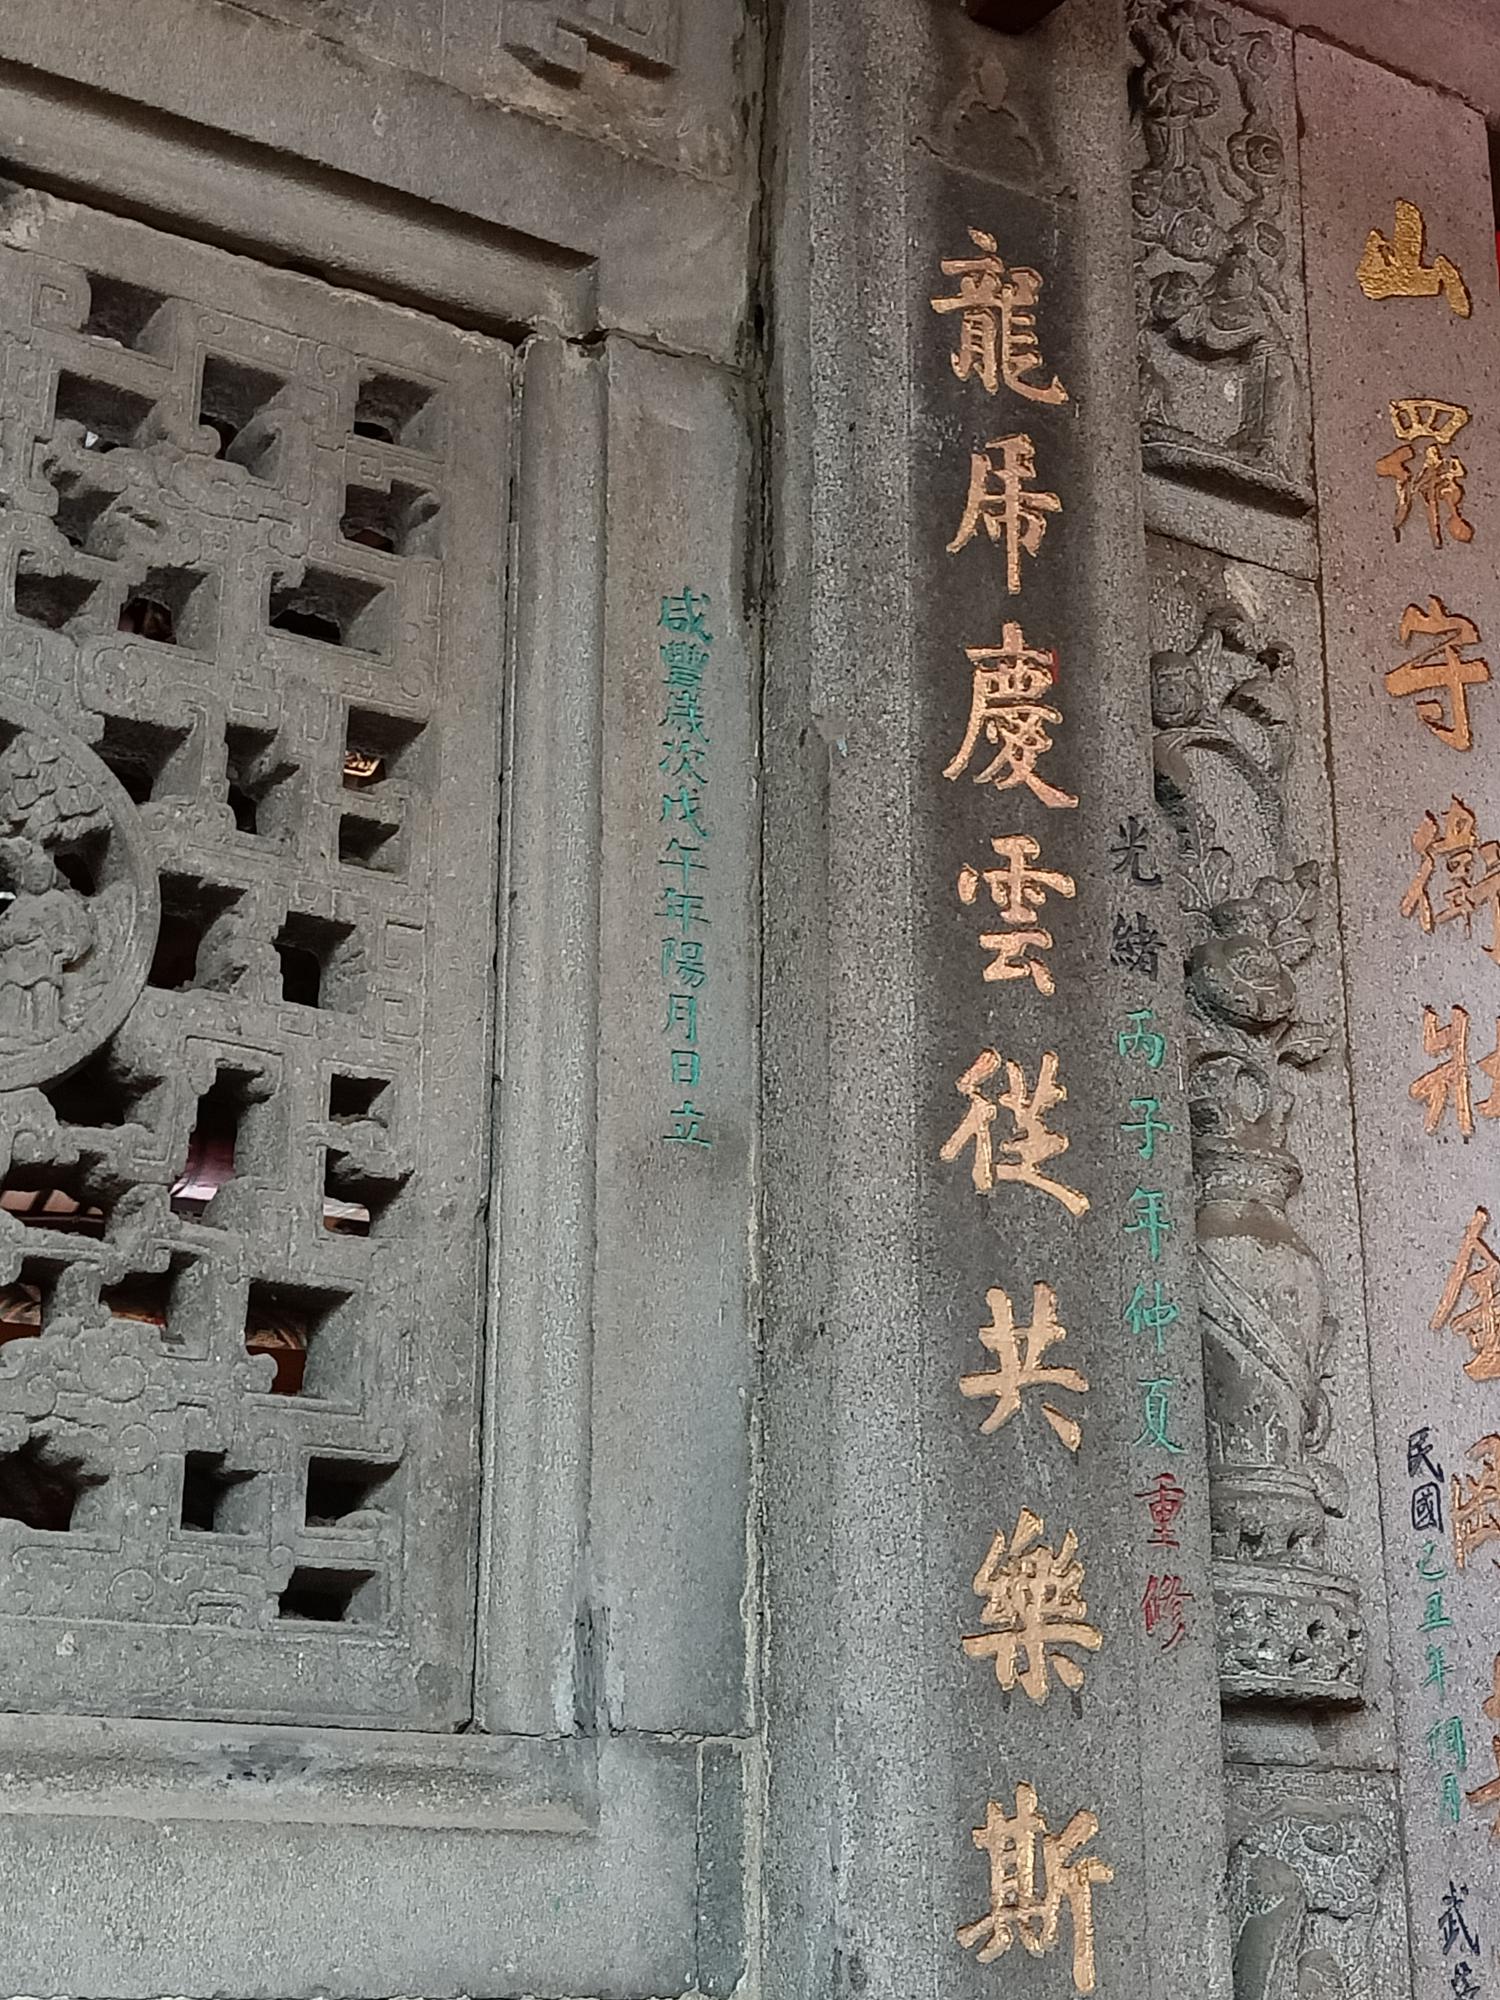 山羅守衛壯金
民國己丑年
武
光緒丙子年仲夏重修
龍虎慶雲從共樂斯
咸豐歲次戊午年陽月日立